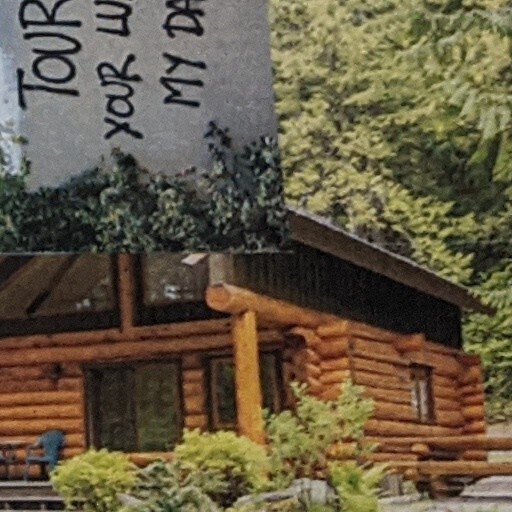 TOUR
YOUR LU
MY DA